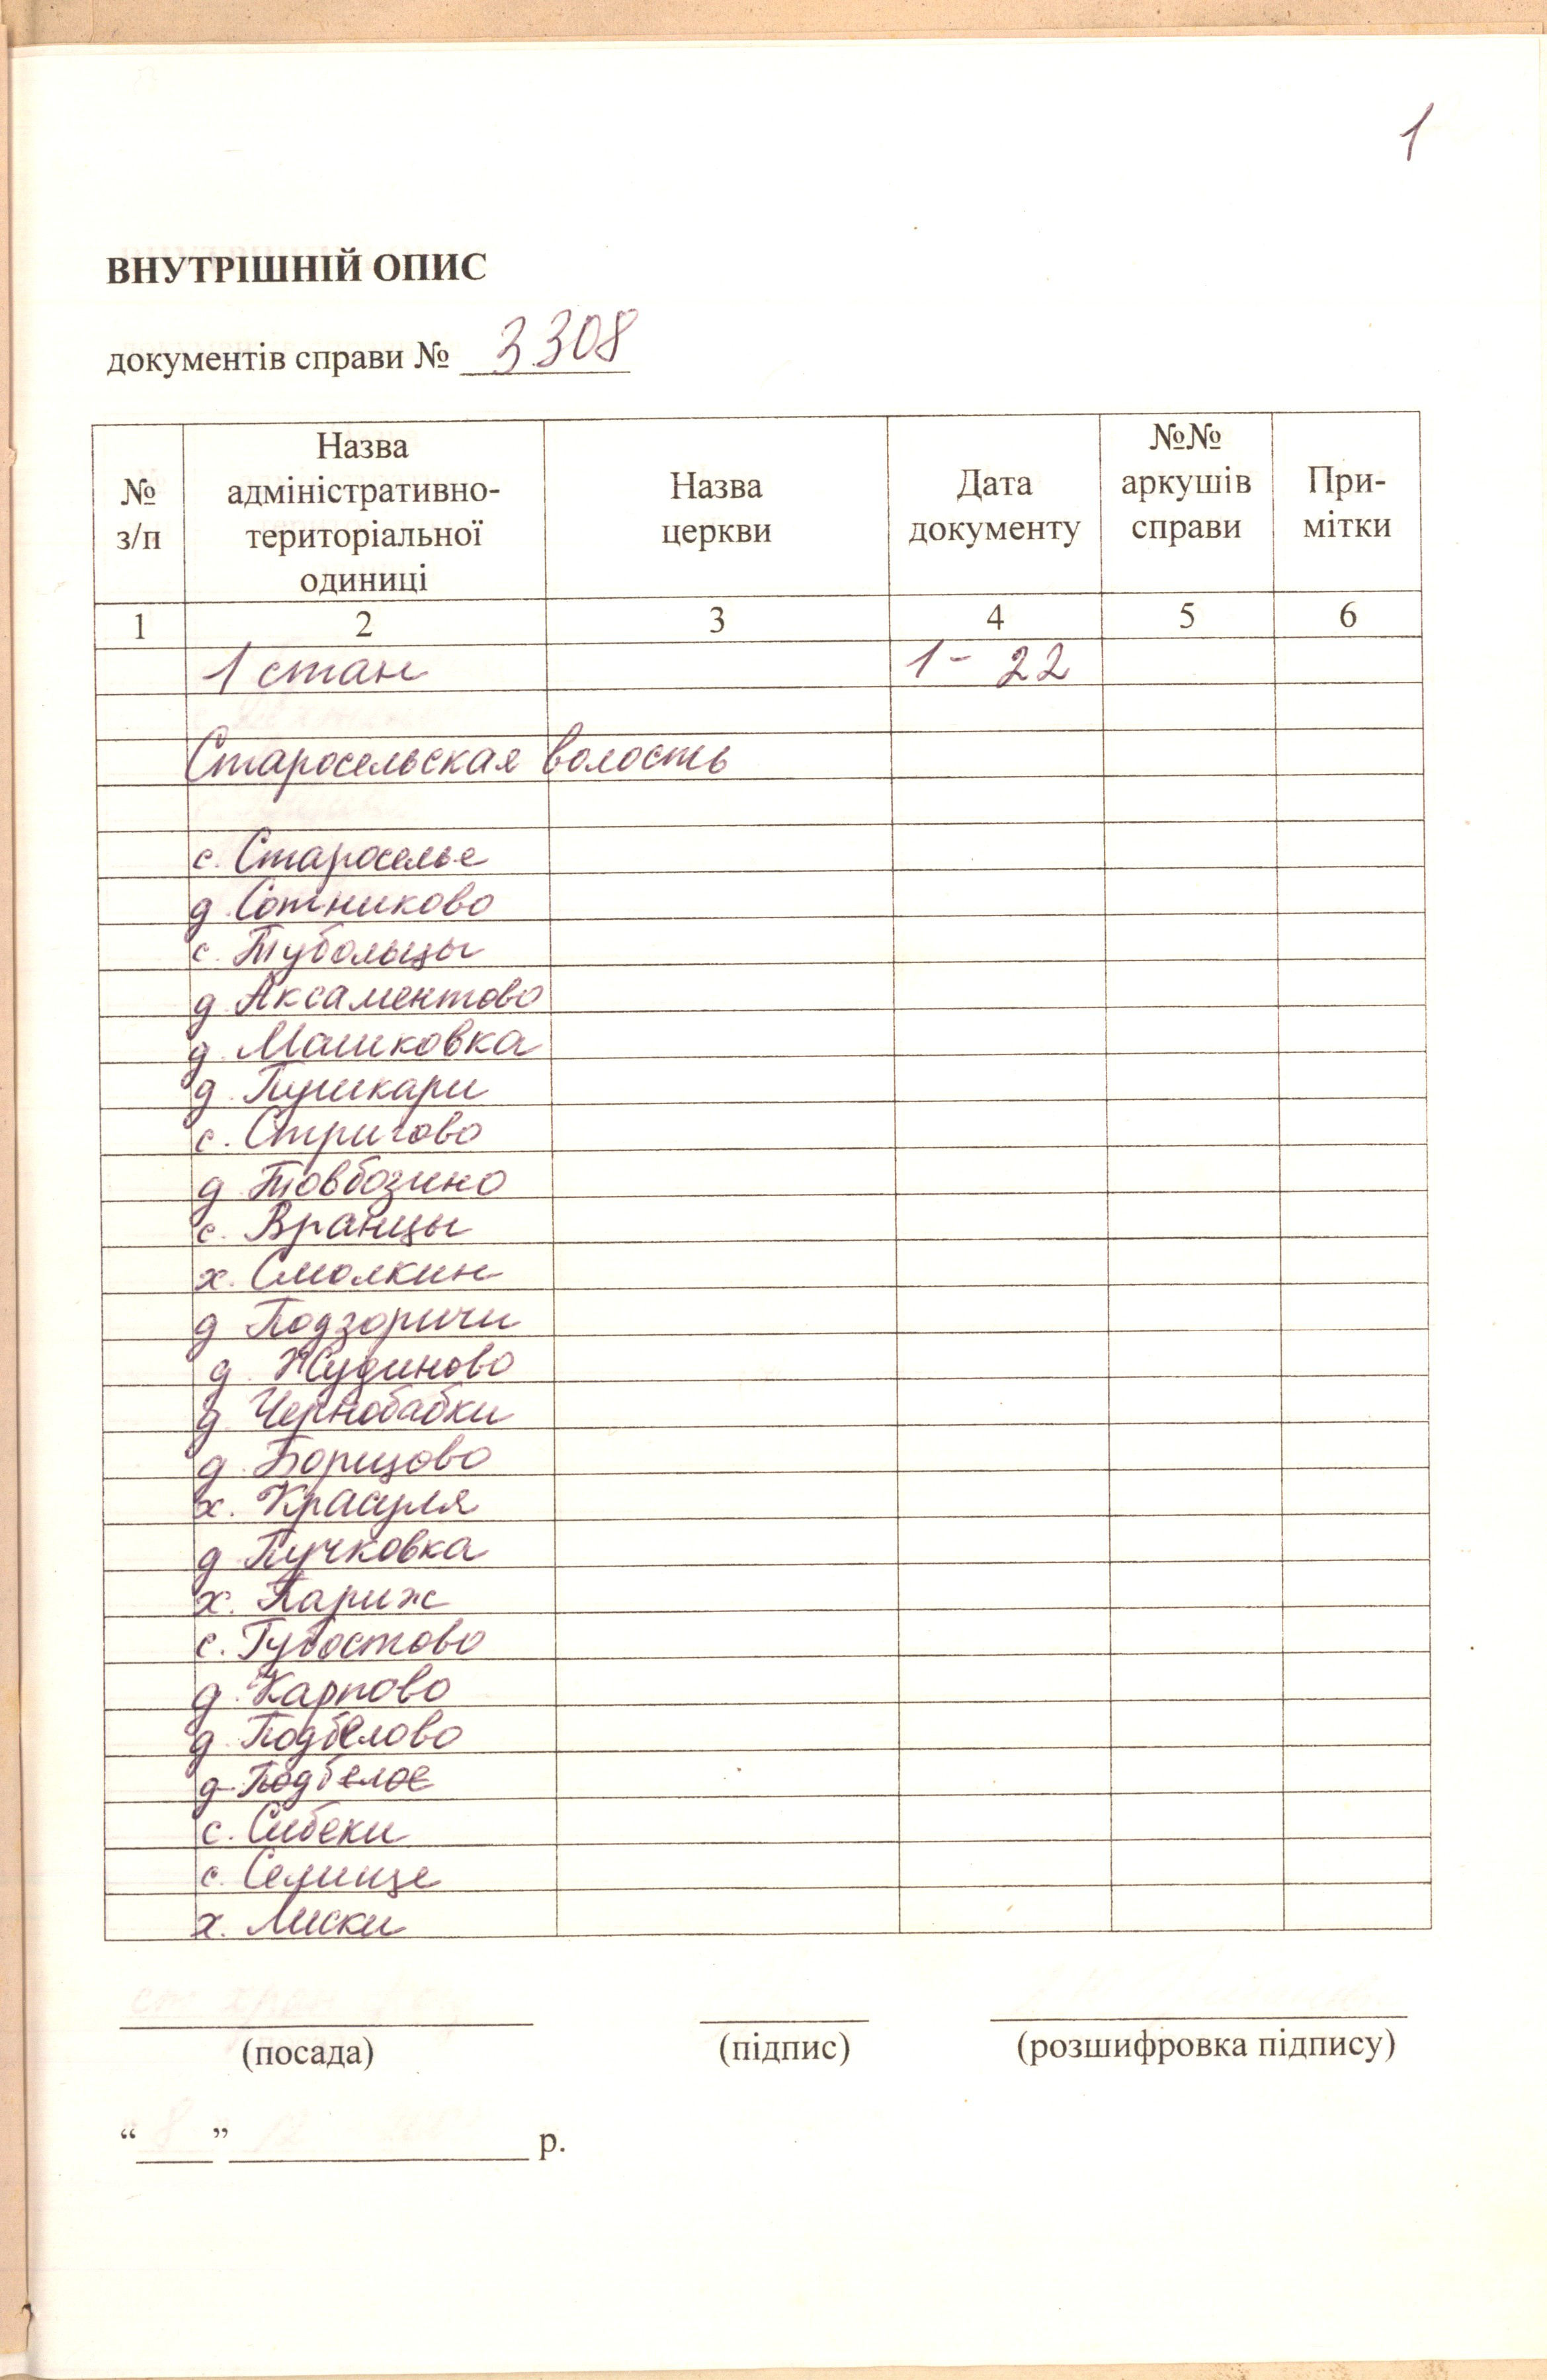 1
ВНУТРІШНІЙ ОПИС
документів справи № 3308
№ з/п
Назва адміністративно-територіальної одиниці
Назва церкви
Дата документу
№№ аркушів справи
Примітки
1 2 3 4 5 6
1 стан 1 - 22
Старосельская волость
с. Староселье
д. Сотниково
с. Тубольцы
д. Аксаментово
д. Машковка
д. Пушкари
с. Стригово
д. Товбозино
с. Вранцы
х. Смолкин
д. Подзоричи
д. Жудиново
д. Чернобабки
д. Борщово
х. Красуля
д. Пучковка
х. Париж
с. Губостово
д. Карпово
д. Подбелово
д. Подбелое
с. Сибеки
с. Селище
х. Лиски
(посада) (підпис) (розшифровка підпису)
“ ” р.